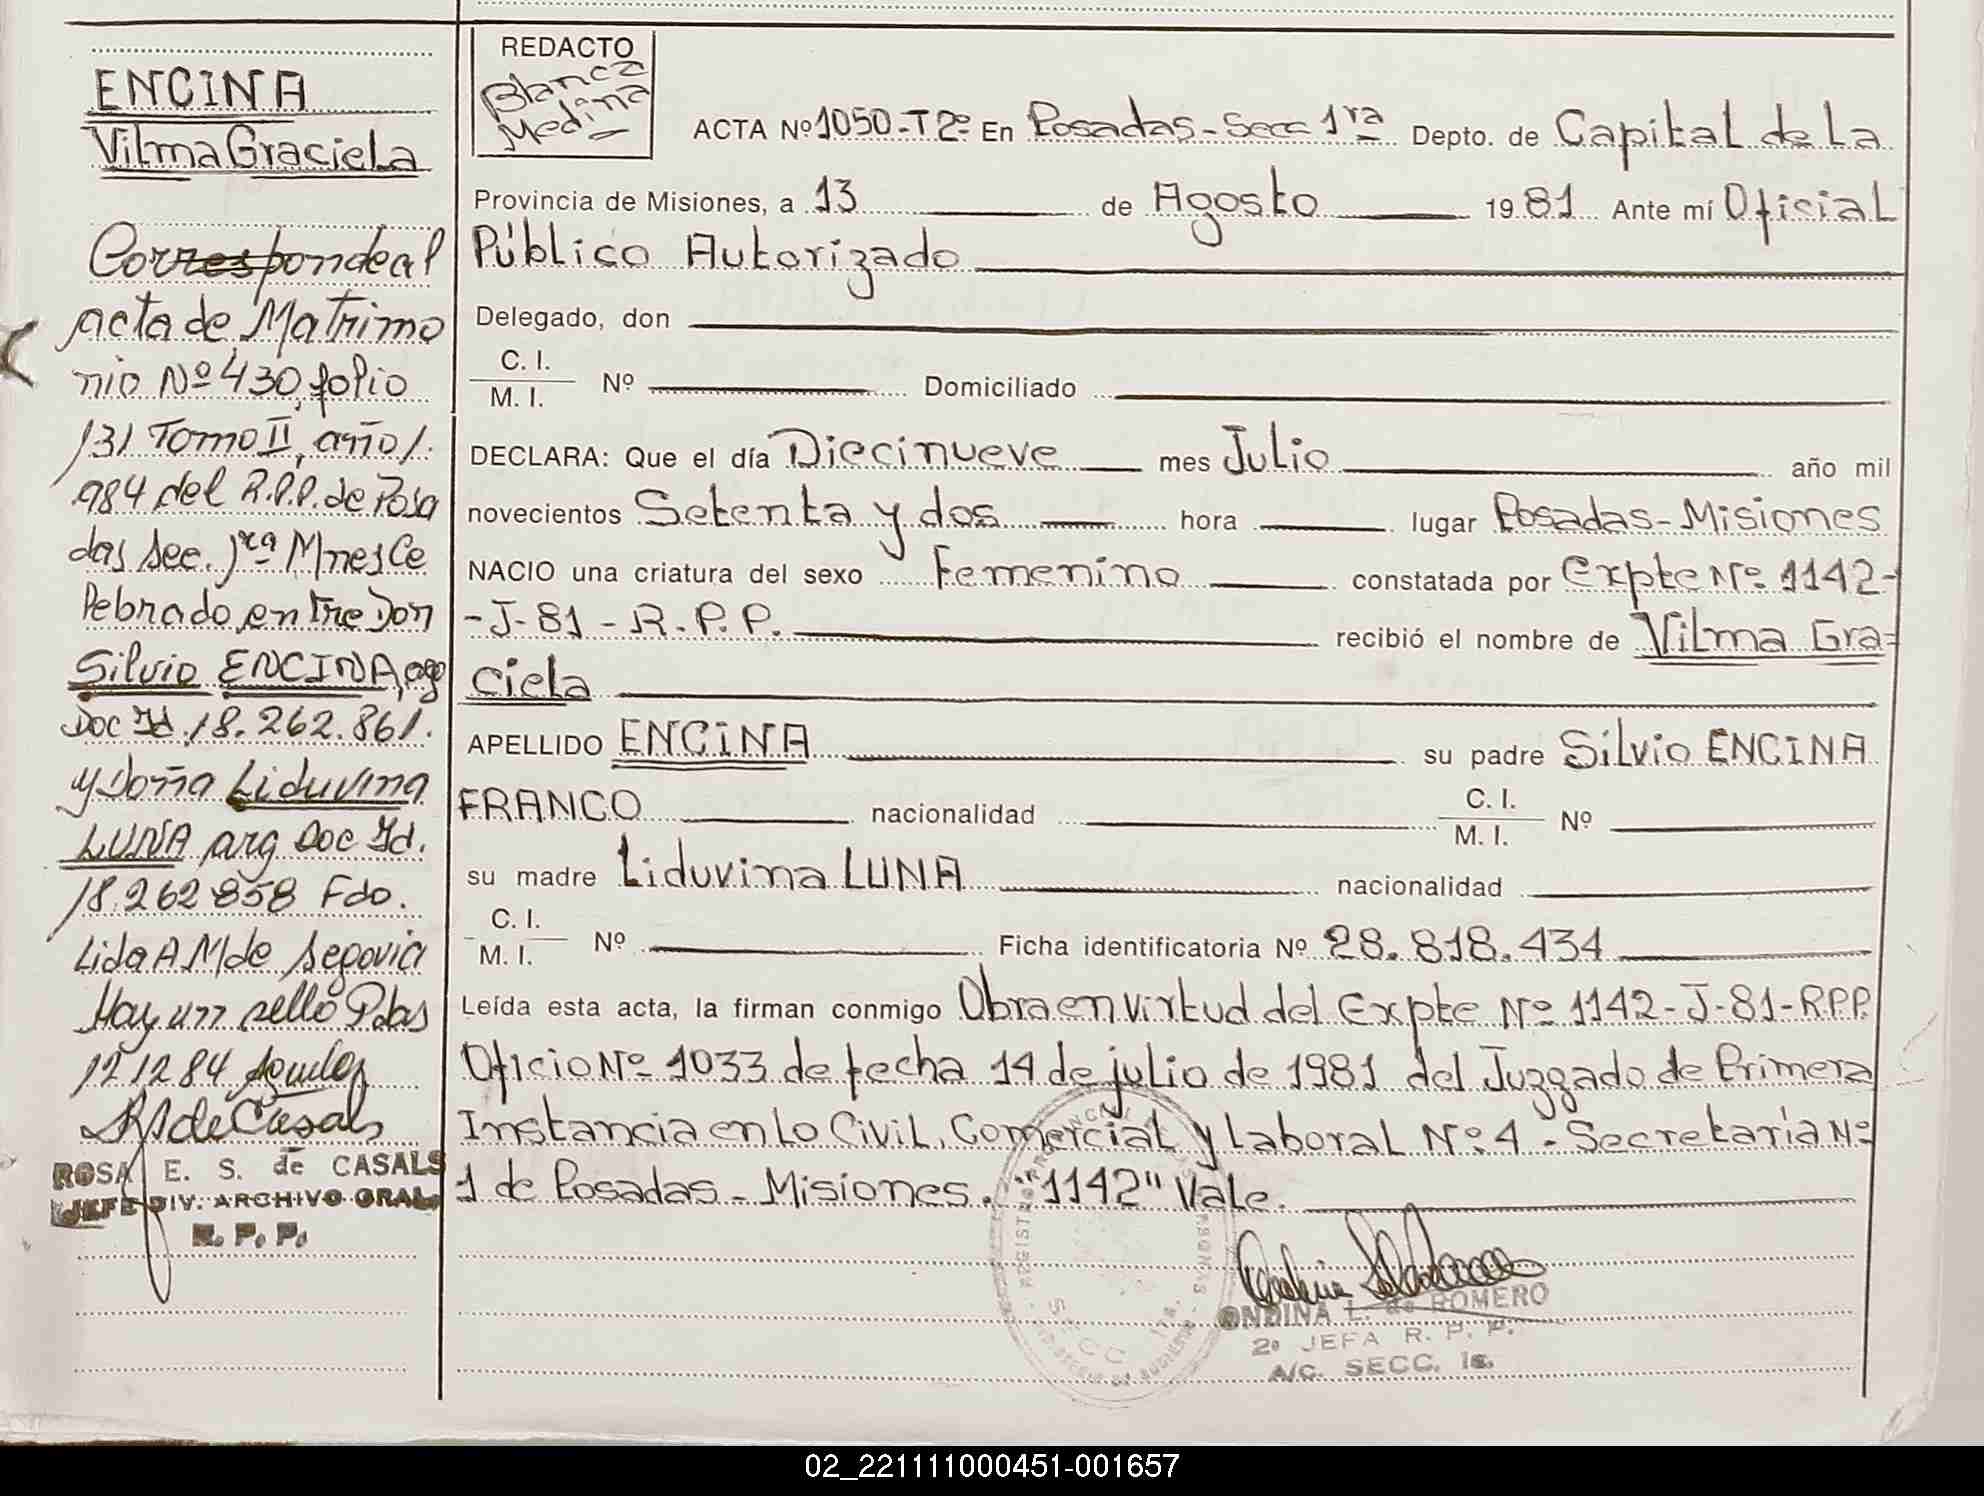 ENCINA
Vilma Graciela
Correspondeal
acta de Matrimo
nio Nº 430, folio
131 Tomo II, año 1.
984 del R.P.P. de Posa
das Sec. 1ra Mnes Ce
lebrado, entre Don
Silvio ENCINA, arg
Doc Id. 18.262.861.
y doña Liduvina
LUNA arg Doc Id.
18.262 858 Fdo.
Lida A M de Segovia
Hay un sello Pdas
12 12 84
ROSA E. S. de CASALS
JEFE DIV. ARCHIVO GRAL.
R. P. P.
REDACTO
Blanca
Medina
ACTA Nº 1050-T2º En Posadas-Secc 1ra Depto. de Capital de La
Provincia de Misiones, a 13 de Agosto 1981 Ante mí Oficial
Público Autorizado
Delegado, don
C. I.
M. I. Nº Domiciliado
DECLARA: Que el día Diecinueve mes Julio año mil
novecientos Setenta y dos hora lugar Posadas-Misiones
NACIO una criatura del sexo Femenino constatada por Expte Nº 1142-
-J-81-R.P.P. recibió el nombre de Vilma Gra=
ciela
APELLIDO ENCINA su padre Silvio ENCINA
FRANCO nacionalidad C. I. M. I. Nº
su madre Liduvina LUNA nacionalidad
C. I.
M. I. Nº Ficha identificatoria Nº 28.818.434
Leída esta acta, la firman conmigo Obra en virtud del Expte Nº 1142-J-81-R.P.P.
Oficio Nº 1033 de fecha 14 de julio de 1981 del Juzgado de Primera
Instancia en lo Civil, Comercial y Laboral Nº 4 - Secretaría Nº
1 de Posadas - Misiones. "1142" Vale.
ONDINA L. de ROMERO
2º JEFA R. P. P.
A/C. SECC. 1a.
02_221111000451-001657